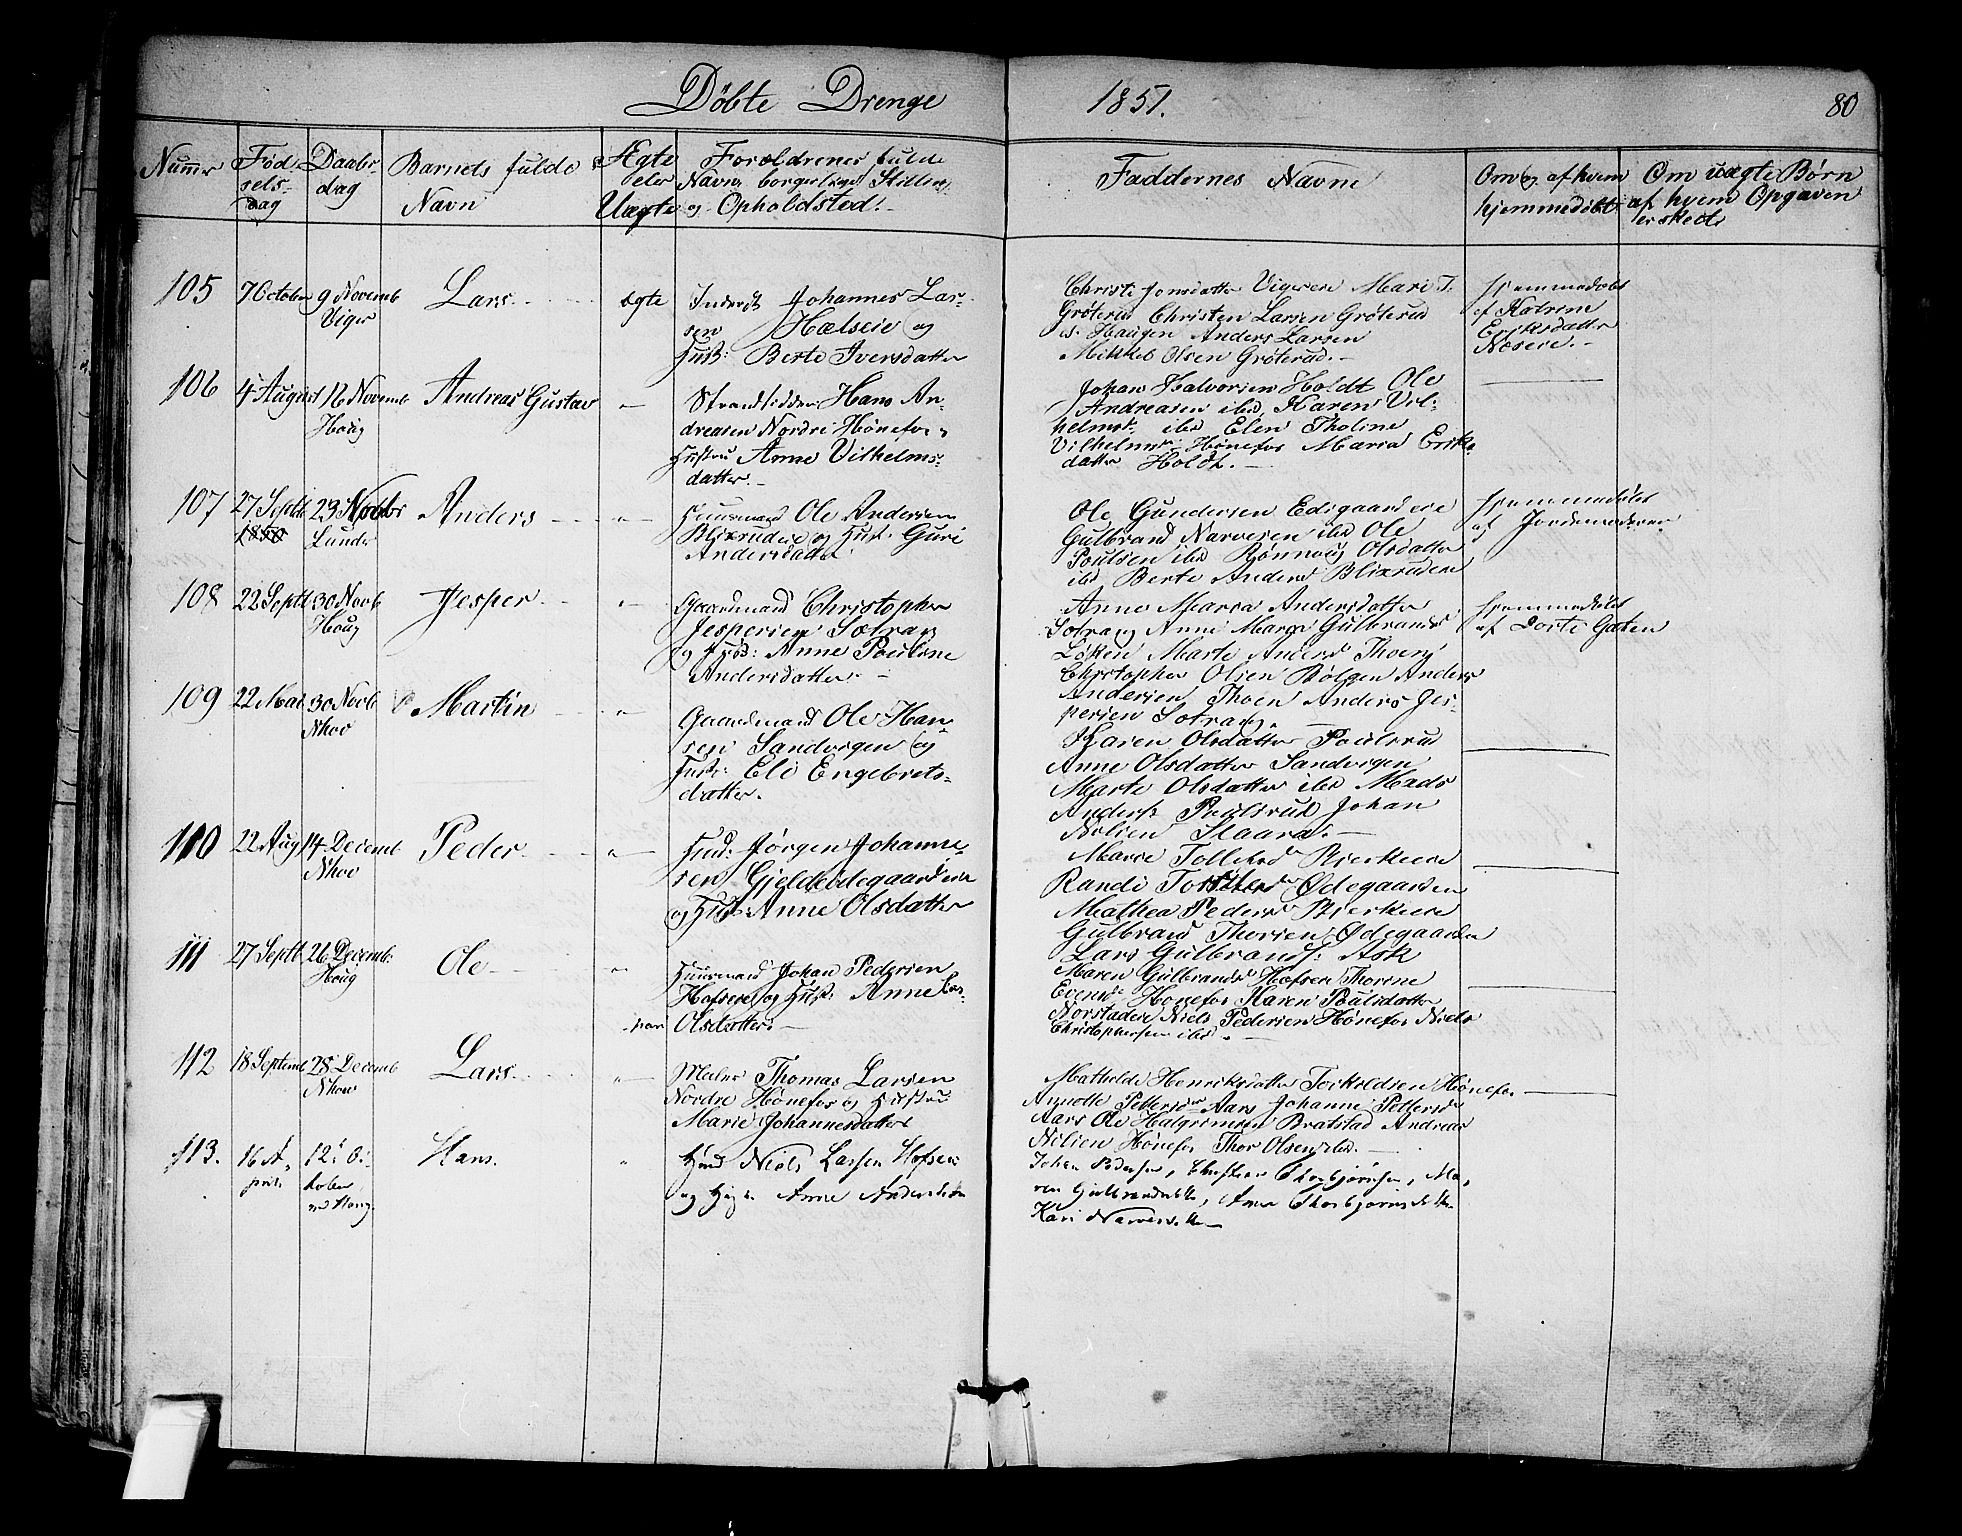 Døbte Drenge 1851. 80
Nummer
Fødselsdag
Daabsdag
Barnets fulde
Navn
Ægte
eller
Uægte
Forældrenes fulde
Navn, borgerlige Stilling
og Opholdsted.
Faddernes Navne
Om og af hvem
hjemmedøbt
Om uægte Børn
af hvem Opgaven
er skedt
105 7 October 9 Novemb Lars ægte
Viger
Inderst Johannes Lar-
sen
Hælseie og
Hust: Berte Iversdatter
Christi Jonsdatter Vigerei Mari
Grøterud Christen Larsen Grøterud
Haugen Anders Larsen
Mikkel Olsen Grøterud.
hjemmedøbt
af Katrine
Eriksdatter
106 4 August 16 Novemb Andreas Gustav
Houg
Strandsidder Hans An-
dreasen Nordre Hønefos
Hustru Anne Vilhelms-
datter.
Johan Halvorsen Holdt Ole
Andreasen ibd, Karen Vil-
helms ibd Elen Tholine
Vilhelms Hønefos Maria Eriks
datter Holdt.
107 27 Septb 23 Novbr Anders
1850 Lunder
Huusmand Ole Andersen
Blixrudeie og Hust. Guri
Andersdatter
Ole Gundersen
Gulbrand Narvesen ibd Ole
Poulsen ibd Rønnaug Olsdatter
ibd Berte Anders Blixruden
hjemmedøbt
af Jordemoderen
108 22 Septb 30 Novb Jesper
Houg
Gaardmand Christopher
Jespersen Sætrang
og Hust: Anne Pouline
Andersdatter.
Anne Maria Andersdatter
Sætrang Anne Maria Gulbrands
Løken Marte Anders Thoen
Christopher Olsen Bølgen Anders
Andersen Thoen Anders Jes-
persen Sætrang.
hjemmedøbt
af Dorte Gaten
109 22 Mai 30 Novb Martin
Nhov
Gaardmand Ole Han-
sen Sandvigen og
Hust: Eli Engebrets-
datter.
Karen Olsdatter Poulsrud
Anne Olsdatter Sandvigen
Marte Olsdatter ibd Mads
Anders Poulsrud Johan
Nilsen Slaara.
110 22 Aug 14 Decemb Peder
Nhov
Jørgen Johanne-
sen Gjeldeødegaardeie
og Hust: Anne Olsdatter
Marie Tollefsd
Randi Ødegaarden
Mathea Peders
Gulbrand Thorsen Ødegaarden
Lars Gulbrands: Ask
111 27 Septb 26 Decemb: Ole
Houg
Huusmand Johan Pedersen
Hofseie og Hust: Anne
Olsdatter
Maren Gulbrands Hofsen Thorine
Evens Hønefos Karen Poulsdatter
Norstadeie Niels Pedersen Hønefos Niels
Christophersen ibd.
112 18 Septemb 28 Decemb Lars
Nhov
Maler Thomas Larsen
Nordre Hønefos og Hustru
Marie Johannesdatter
Mathilde Henriksdatter Torkildsen Hønefos
Annette Pettersd Aars Johanne Pettersd
Aars Ole Halgrimsen Bratstad Andreas
Nilsen Hønefos Thor Olsen ibd.
113. 16 A- 12' O- Hans.
pril tober
Houg
Niels Larsen Hofsen
og Anne Andersdatter
Johan Pedersen, Christian Thorbjørnsen, Ma-
ren Gulbrandsdatter, Anne Thorbjørnsdatter
Kari Narvesdatter